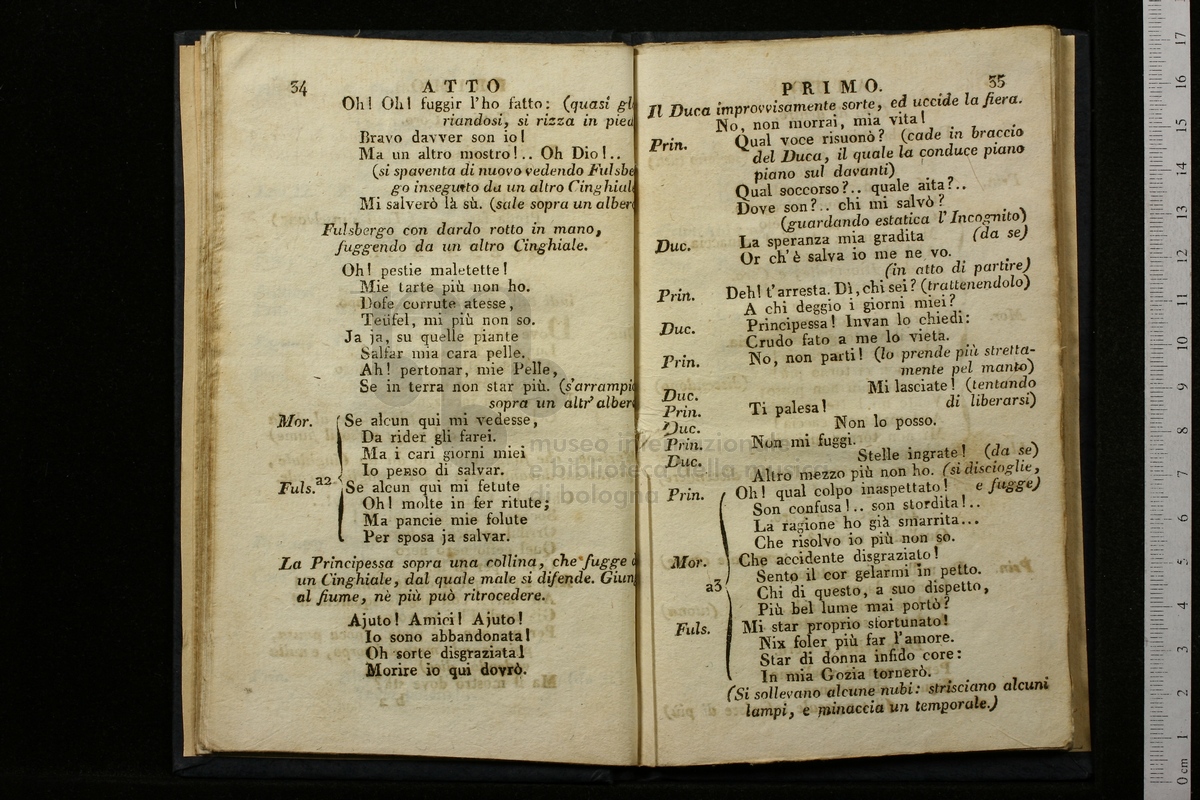 34 ATTO
Oh! Oh! fuggir l'ho fatto: (quasi
riandosi, si rizza in
Bravo davver son io!
Ma un altro mostro!.. Oh Dio!..
(si spaventa di nuovo vedendo
go inseguito da un altro
Mi salverò là sù. (sale sopra un
Fulsbergo con dardo rotto in mano,
fuggendo da un altro Cinghiale.
Oh! pestie maletette!
Mie tarte più non ho.
Dofe corrute atesse,
Teüfel, mi più non so.
Ja ja, su quelle piante
Salfar mia cara pelle.
Ah! pertonar, mie Pelle,
Se in terra non star più.
sopra un altr'
Mor. Se alcun qui mi vedesse,
Da rider gli farei.
Ma i cari giorni miei
Io penso di salvar.
Fuls. a2 Se alcun qui mi fetute
Oh! molte in fer ritute;
Ma pancie mie folute
Per sposa ja salvar.
La Principessa sopra una collina, che fugge
un Cinghiale, dal quale male si difende.
al fiume, nè più può ritrocedere.
Ajuto! Amici! Ajuto!
Io sono abbandonata!
Oh sorte disgraziata!
Morire io qui dovrò.
PRIMO. 35
Il Duca improvvisamente sorte, ed uccide la fiera.
No, non morrai, mia vita!
Prin. Qual voce risuonò? (cade in braccio
del Duca, il quale la conduce piano
piano sul davanti)
Qual soccorso?.. quale aita?..
Dove son?.. chi mi salvò?
(guardando estatica l'Incognito)
Duc. La speranza mia gradita (da se)
Or ch'è salva io me ne vo.
(in atto di partire)
Prin. Deh! t'arresta. Dì, chi sei? (trattenendolo)
A chi deggio i giorni miei?
Duc. Principessa! Invan lo chiedi:
Crudo fato a me lo vieta.
Prin. No, non parti! (lo prende più stretta-
mente pel manto)
Duc. Mi lasciate! (tentando
di liberarsi)
Prin. Ti palesa!
Duc. Non lo posso.
Prin. Non mi fuggi.
Duc. Stelle ingrate! (da se)
Altro mezzo più non ho. (si discioglie,
e fugge)
Prin. Oh! qual colpo inaspettato!
Son confusa!.. son stordita!..
La ragione ho già smarrita...
Che risolvo io più non so.
Mor. Che accidente disgraziato!
Sento il cor gelarmi in petto.
a3 Chi di questo, a suo dispetto,
Più bel lume mai portò?
Fuls. Mi star proprio sfortunato!
Nix foler più far l'amore.
Star di donna infido core:
In mia Gozia tornerò.
(Si sollevano alcune nubi: strisciano alcuni
lampi, e minaccia un temporale.)
museo internazionale
e biblioteca della musica
di bologna